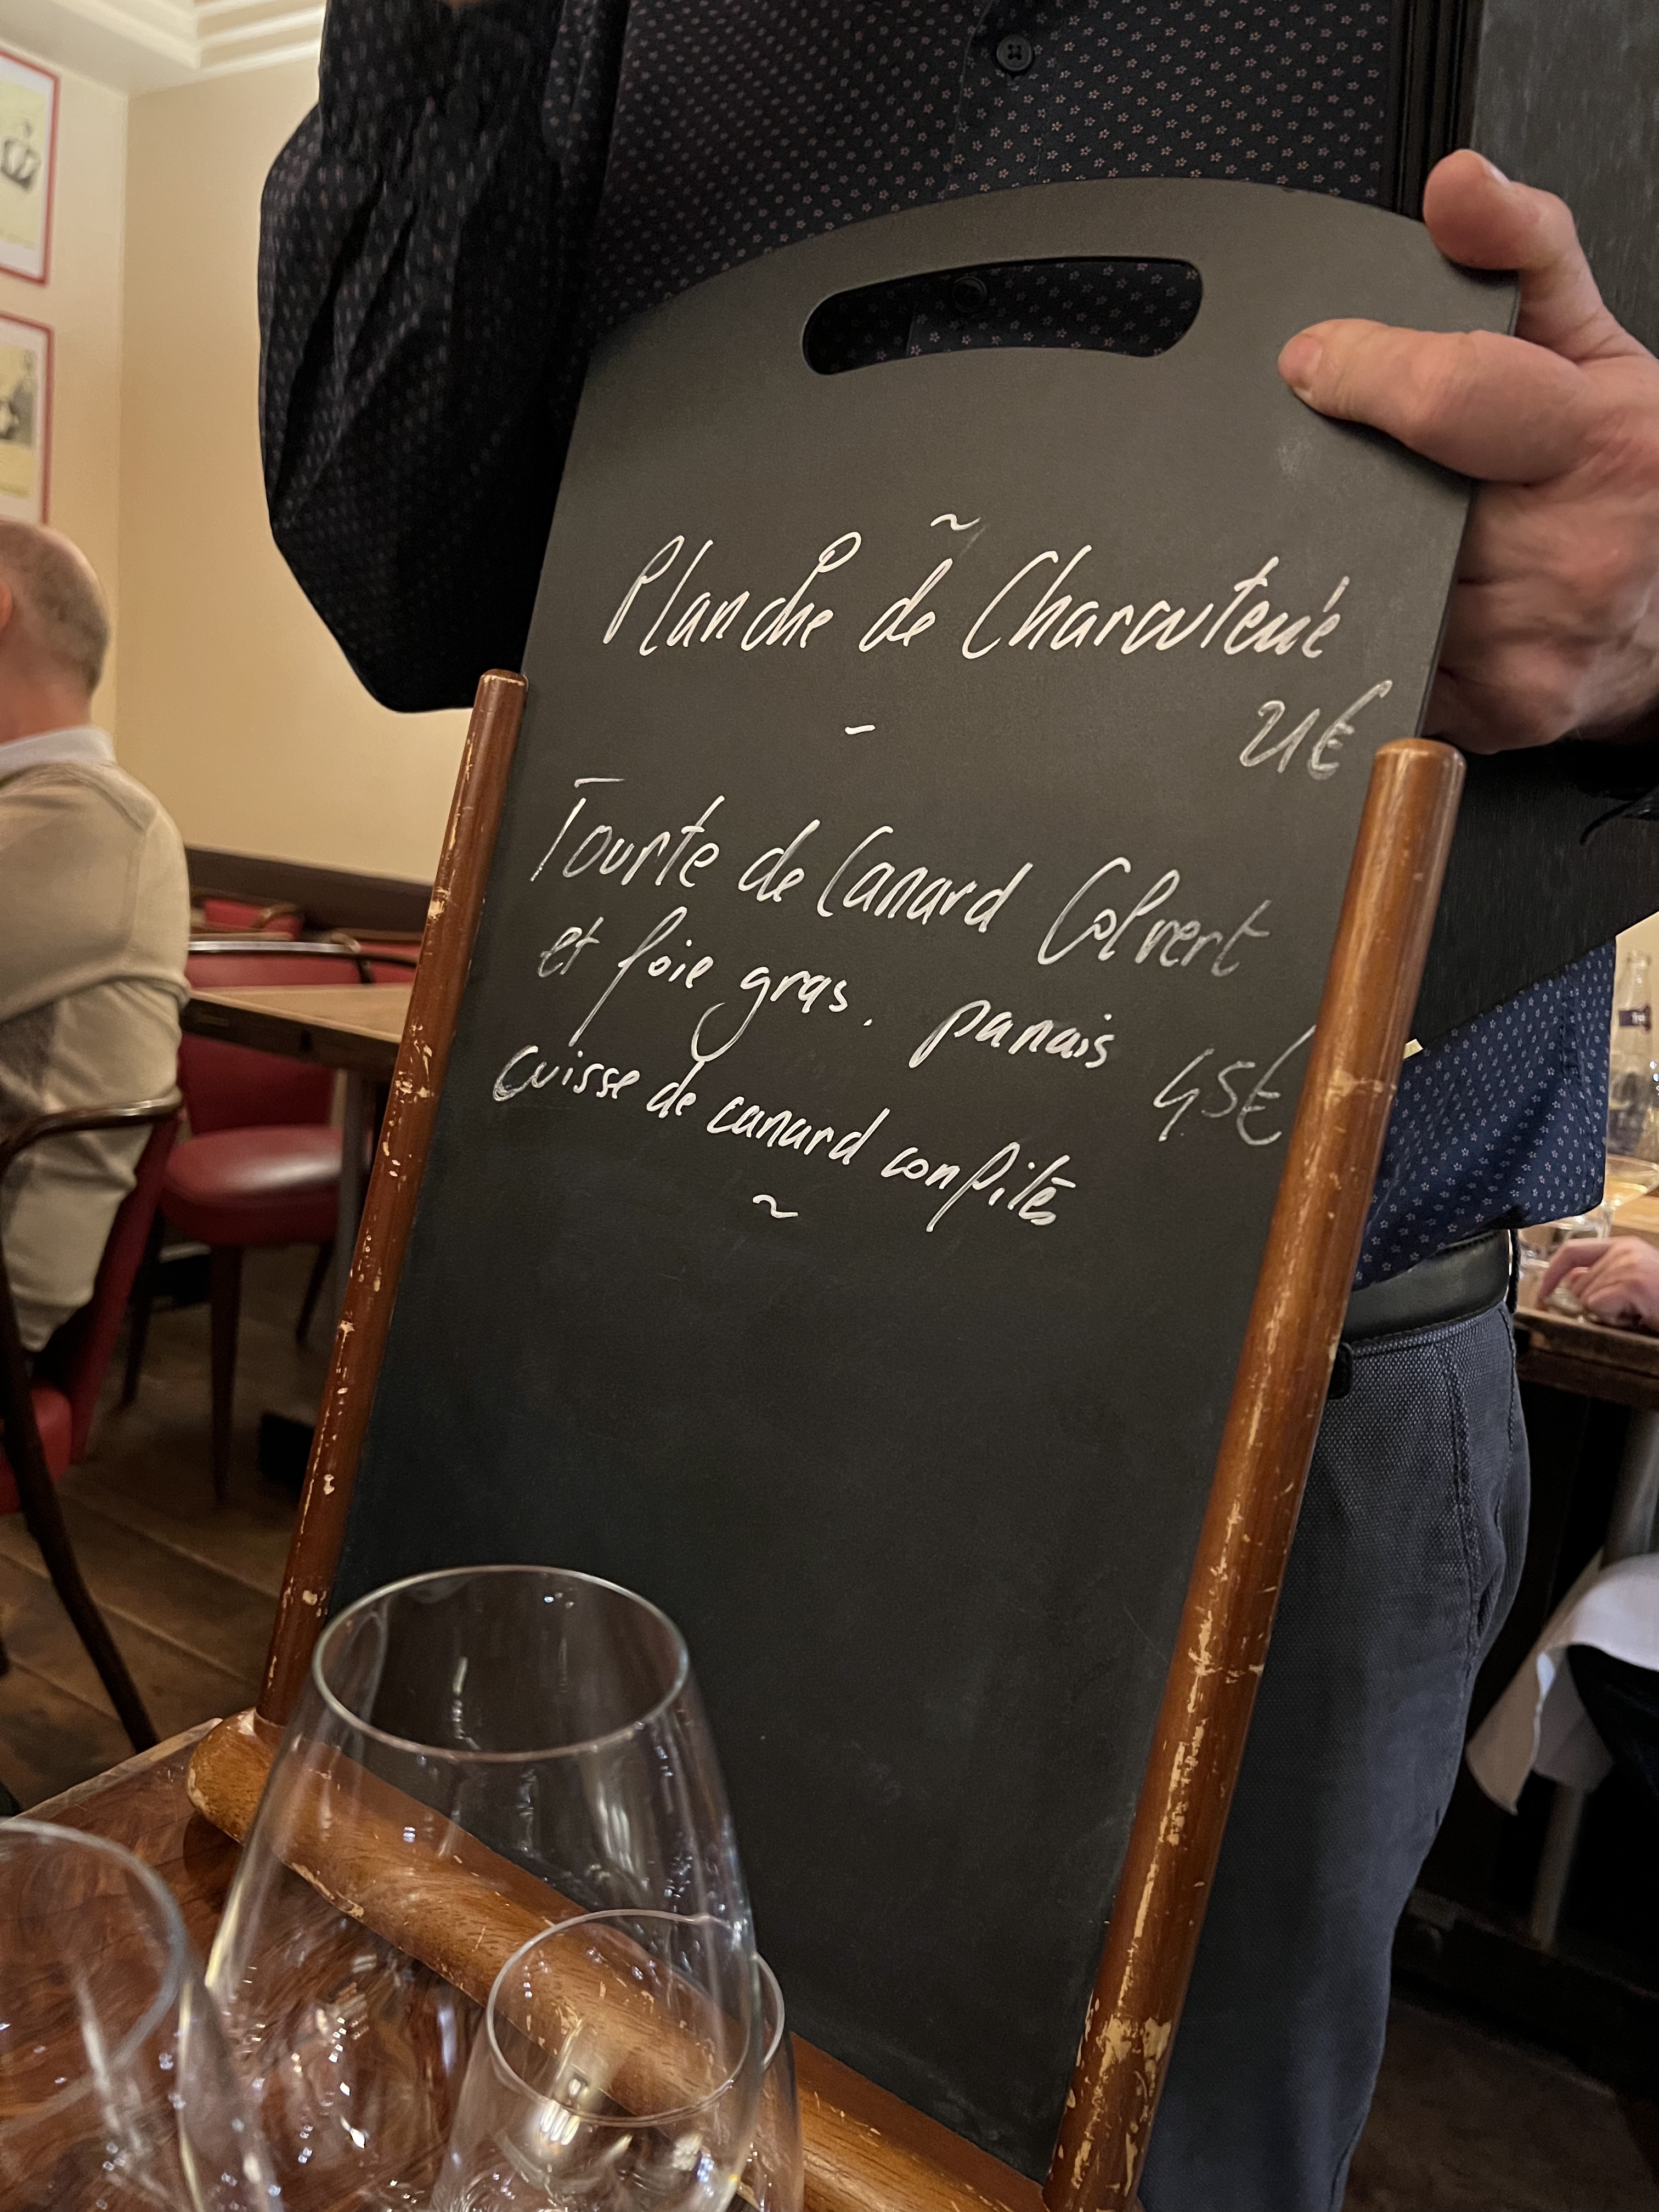 ~
Planche de Charcuterie
21€
-
Tourte de Canard Colvert
et foie gras. panais
45€
cuisse de canard confités
~